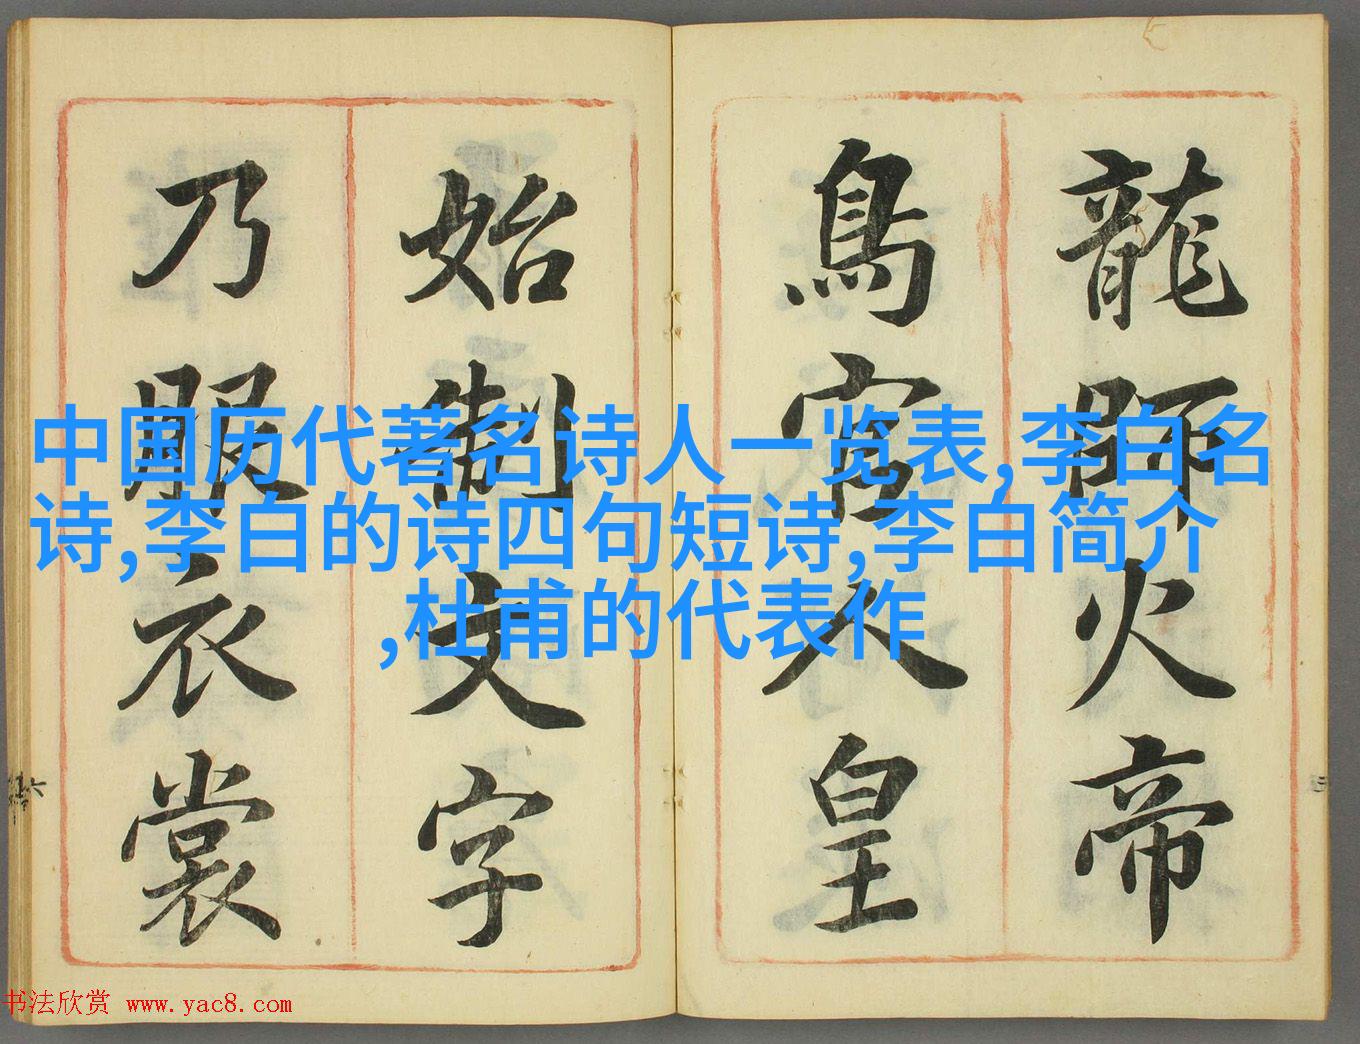 龍師火帝
鳥官人皇
始制文字
乃服衣裳
中国历代著名诗人一览表,李白名
诗,李白的诗四句短诗,李白简介
,杜甫的代表作
书法欣赏 www.yac8.com